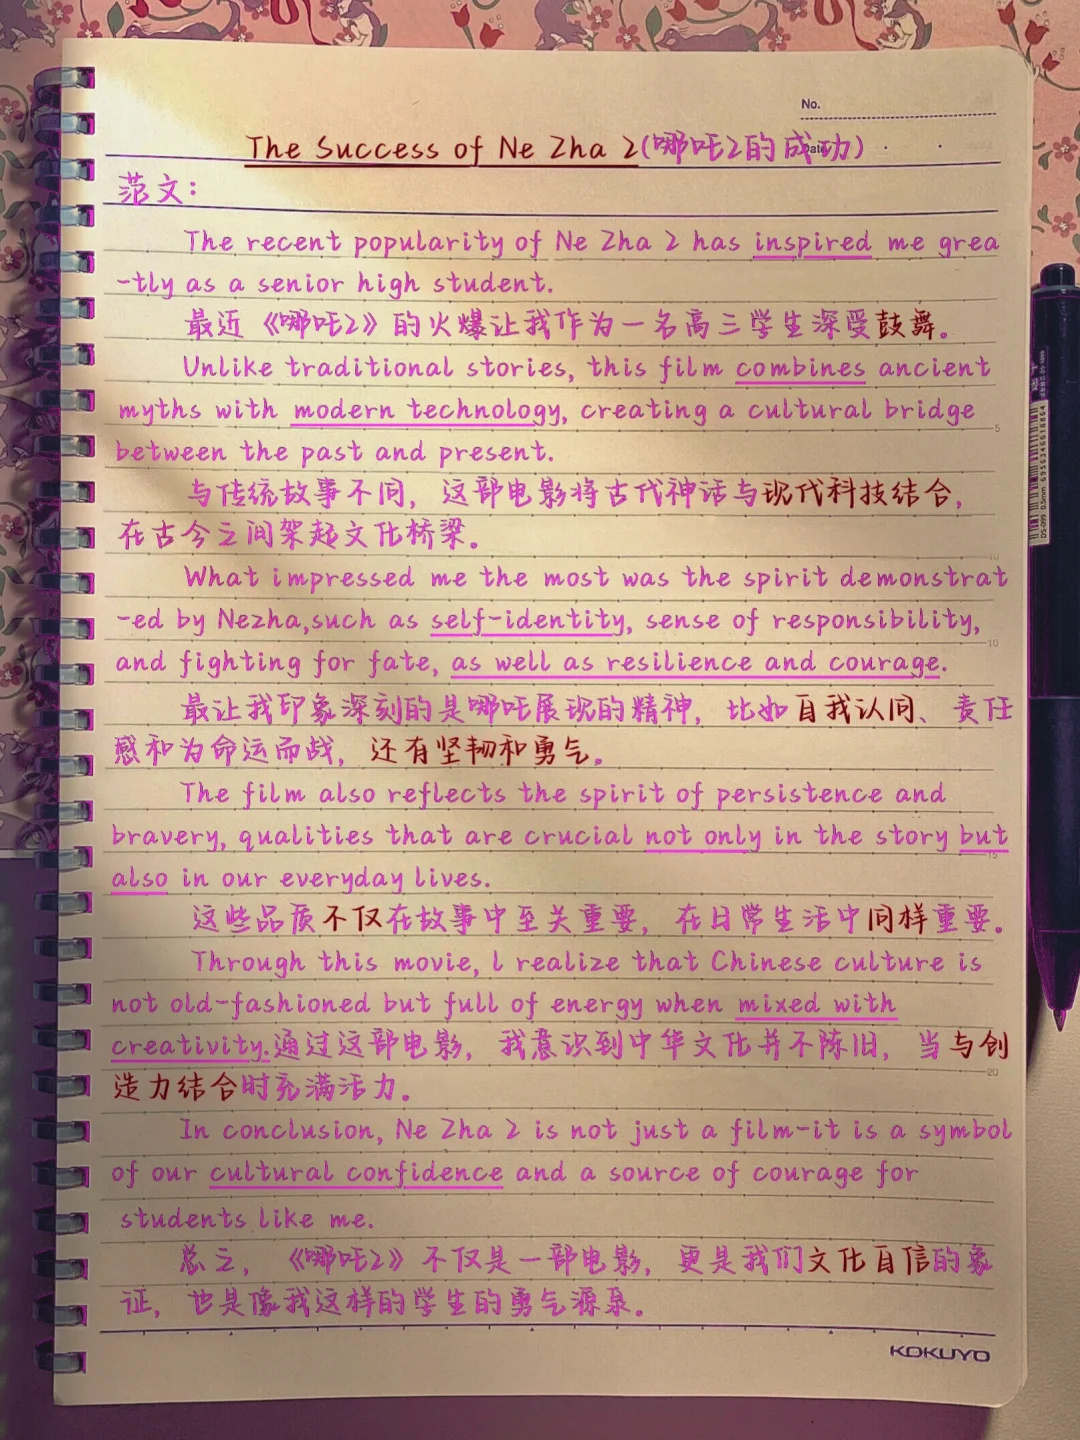 No.
Date
The Success of Ne Zha 2(哪吒2的成功)
范文:
The recent popularity of Ne Zha 2 has inspired me grea
-tly as a senior high student.
最近《哪吒2》的火爆让我作为一名高三学生深受鼓舞。
Unlike traditional stories, this film combines ancient
myths with modern technology, creating a cultural bridge
between the past and present.
与传统故事不同，这部电影将古代神话与现代科技结合，
在古今之间架起文化桥梁。
What impressed me the most was the spirit demonstrat
-ed by Nezha,such as self-identity, sense of responsibility,
and fighting for fate, as well as resilience and courage.
最让我印象深刻的是哪吒展现的精神，比如自我认同、责任
感和为命运而战，还有坚韧和勇气。
The film also reflects the spirit of persistence and
bravery, qualities that are crucial not only in the story but
also in our everyday lives.
这些品质不仅在故事中至关重要，在日常生活中同样重要。
Through this movie, l realize that Chinese culture is
not old-fashioned but full of energy when mixed with
creativity.通过这部电影，我意识到中华文化并不陈旧，当与创
造力结合时充满活力。
In conclusion, Ne Zha 2 is not just a film-it is a symbol
of our cultural confidence and a source of courage for
students like me.
总之，《哪吒2》不仅是一部电影，更是我们文化自信的象
证，也是像我这样的学生的勇气源泉。
KOKUYO
5
10
15
20
DS-099 0.5mm 6956346618864